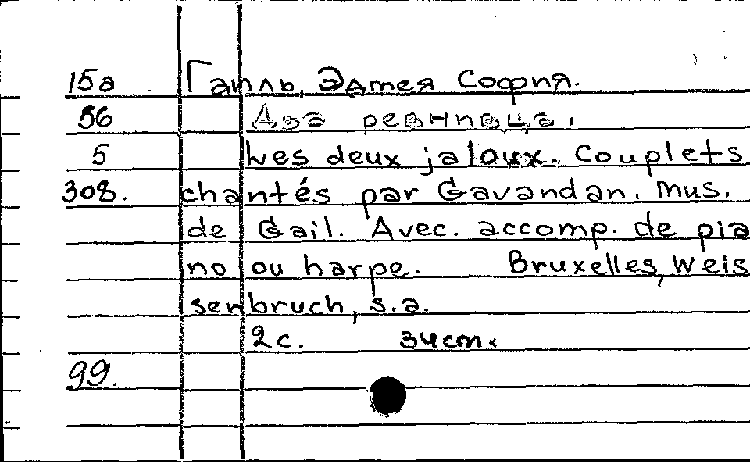 15а Гаиль, Эдмея София.
56 Два ревнивца.
5 Les deux jaloux. Couplets
308. chantés par Gavandan. Mus.
de Gail. Avec. accomp. de pia
no ou harpe. Bruxelles, Weis
senbruch, s.a.
2с. 34 cm.
99.